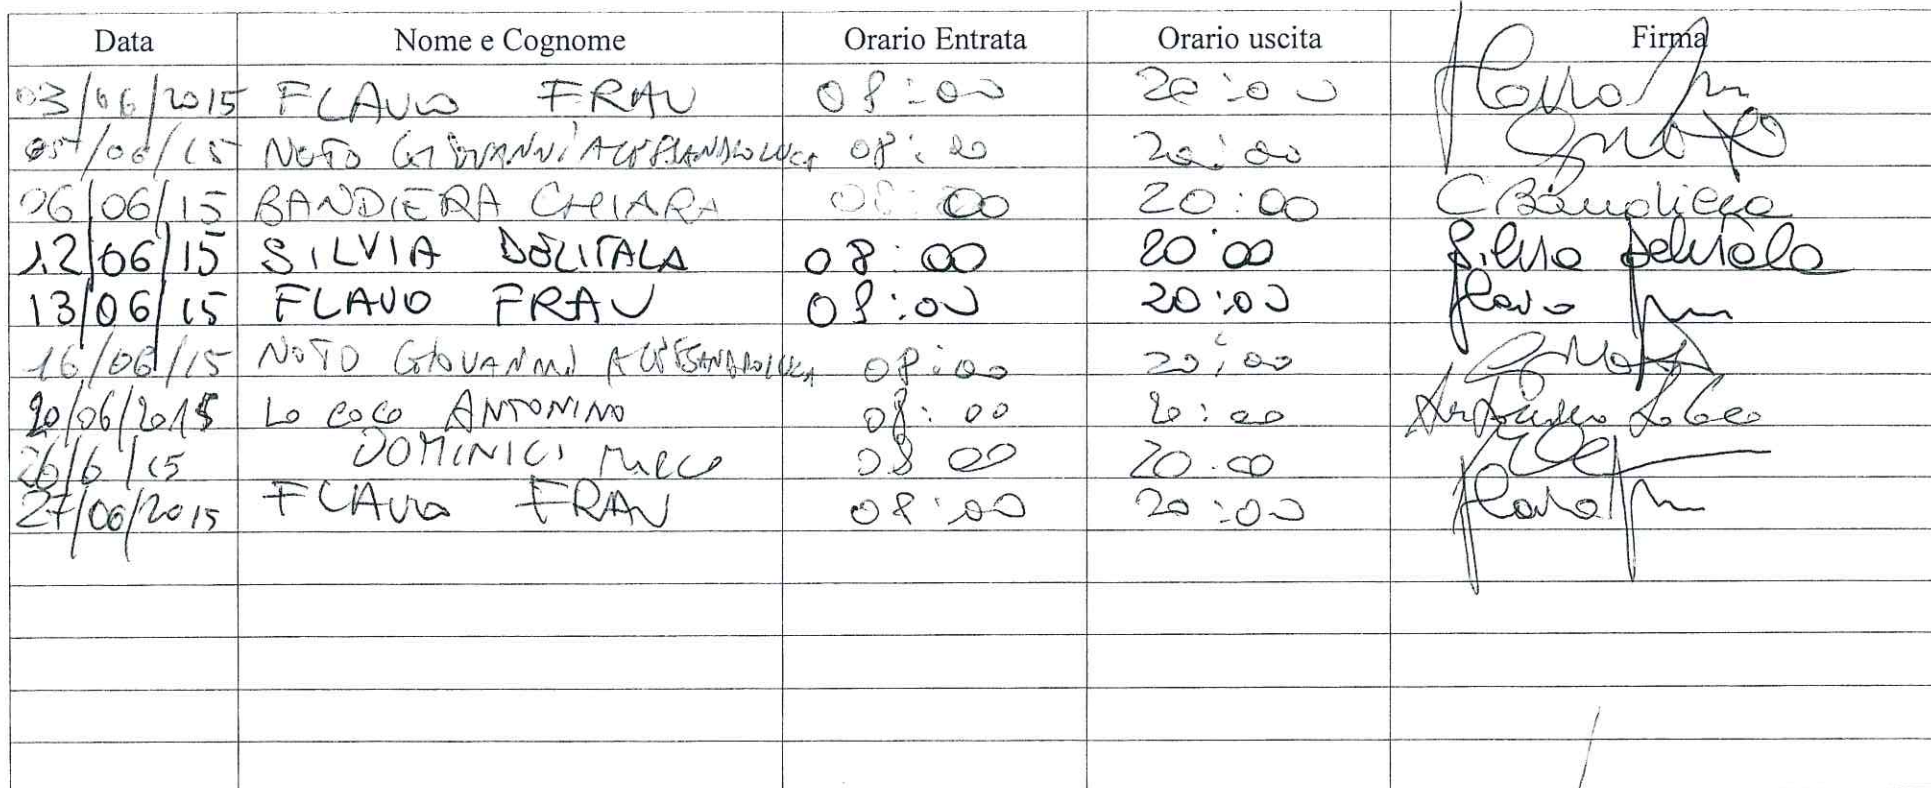 Data Nome e Cognome Orario Entrata Orario uscita Firma
03/06/2015 FLAVIO FRAU 08:00 20:00
05/06/15 NOTO GIOVANNI ALESSANDRO LUCA 08:00 20:00 GNoto
06/06/15 BANDIERA CHIARA 08:00 20:00 C Bandiera
12/06/15 SILVIA DELITALA 08:00 20:00 Silvia Delitala
13/06/15 FLAVIO FRAU 08:00 20:00
16/06/15 NOTO GIOVANNI ALESSANDRO LUCA 08:00 20:00 GNoto
20/06/2015 Lo Coco ANTONINO 08:00 20:00 Antonino Lo Coco
26/6/15 DOMINICI 08 00 20.00
27/06/2015 FLAVIO FRAU 08:00 20:00